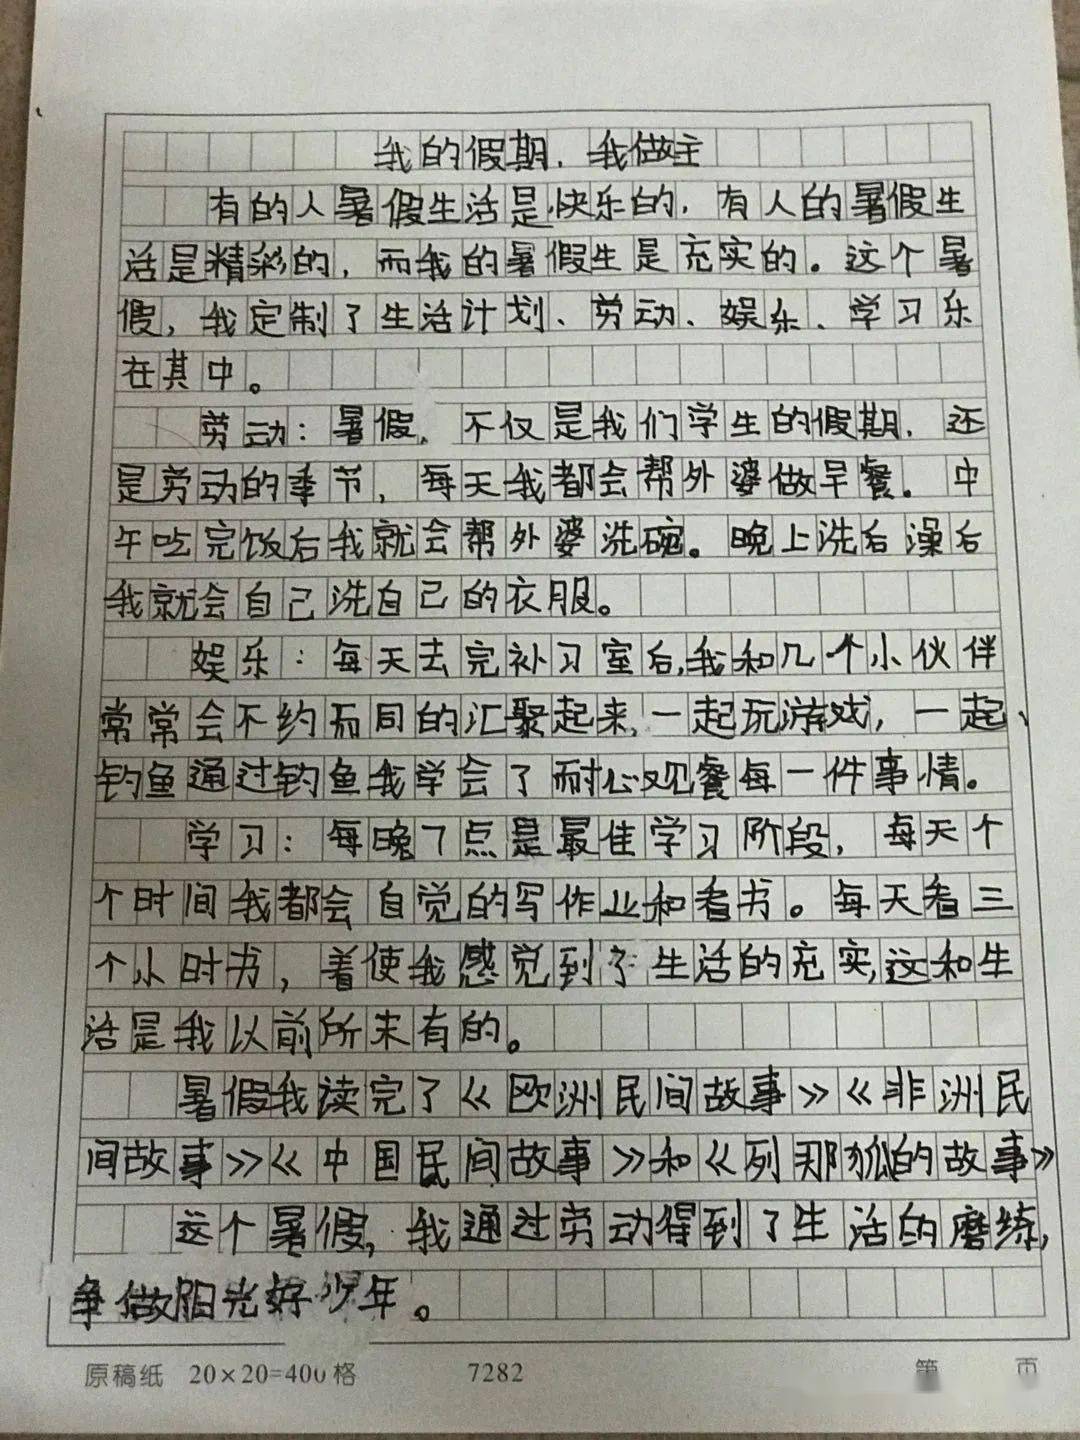 我的假期，我做主
有的人暑假生活是快乐的，有人的暑假生
活是精彩的，而我的暑假生是充实的。这个暑
假，我定制了生活计划、劳动、娱乐、学习乐
在其中。
劳动：暑假，不仅是我们学生的假期，还
是劳动的季节，每天我都会帮外婆做早餐。中
午吃完饭后我就会帮外婆洗碗。晚上洗后澡后
我就会自己洗自己的衣服。
娱乐：每天去完补习室后，我和几个小伙伴
常常会不约而同的汇聚起来，一起玩游戏，一起
钓鱼通过钓鱼我学会了耐心观餐每一件事情。
学习：每晚7点是最佳学习阶段，每天个
个时间我都会自觉的写作业和看书。每天看三
个小时书，着使我感觉到了生活的充实，这和生
活是我以前所未有的。
暑假我读完了《欧洲民间故事》《非洲民
间故事》《中国民间故事》和《列那狐的故事》
这个暑假，我通过劳动得到了生活的磨练，
争做阳光好少年。
原稿纸 20×20=400格 7282 第 页